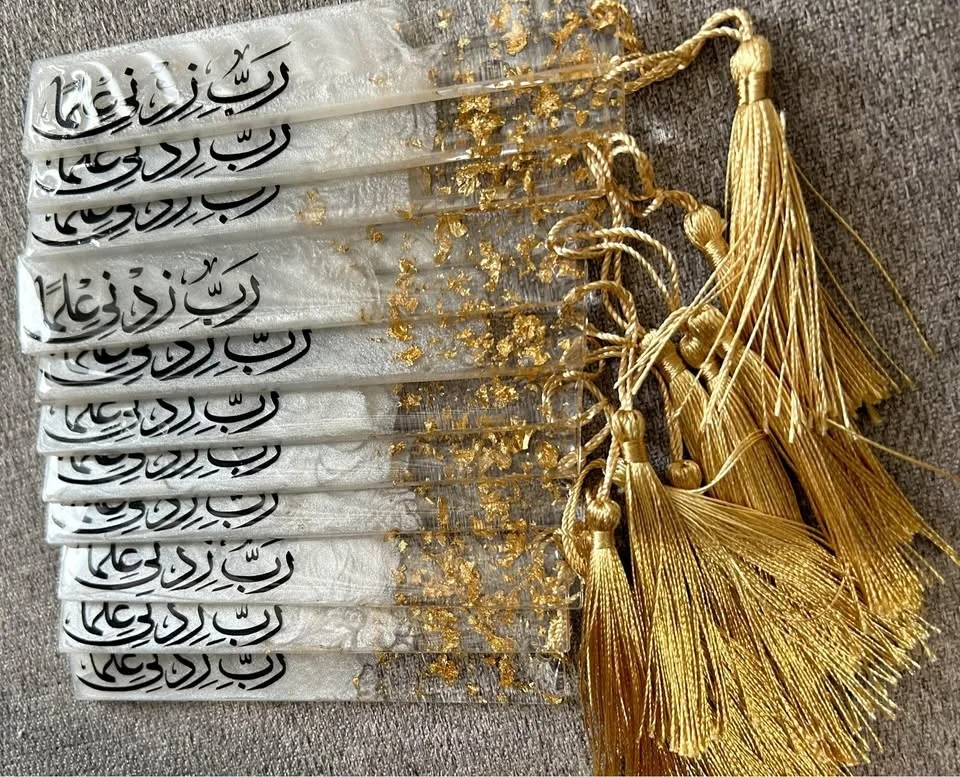 رَبِّ زِدْنِي عِلْمًا
رَبِّ زِدْنِي عِلْمًا
رَبِّ زِدْنِي عِلْمًا
رَبِّ زِدْنِي عِلْمًا
رَبِّ زِدْنِي عِلْمًا
رَبِّ زِدْنِي عِلْمًا
رَبِّ زِدْنِي عِلْمًا
رَبِّ زِدْنِي عِلْمًا
رَبِّ زِدْنِي عِلْمًا
رَبِّ زِدْنِي عِلْمًا
رَبِّ زِدْنِي عِلْمًا